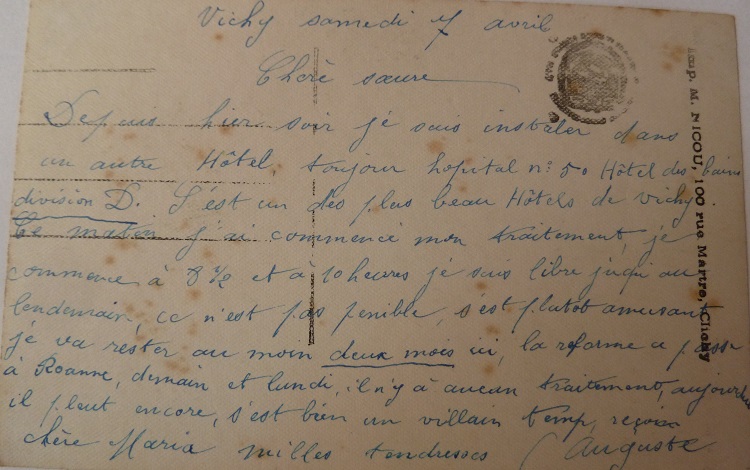 Vichy samedi 7 avril
Chère sœure
Depuis hier soir je suis instaler dans
un autre Hôtel, toujour hopital n° 50 Hôtel des bains
division D. S'est un des plus beau Hôtels de Vichy
Ce matin j'ai commencé mon traitement, je
commence à 8 ½ et à 10 heures je suis libre jusqu au
lendemain, ce n'est pas penible, s'est plutot amusant
je va rester au moin deux mois ici, la reforme a passé
à Roanne, demain et lundi, il n'y à aucun traitement, aujourdhui
il pleut encore, s'est bien un villain temp, reçois
chère Maria milles tendresses Auguste
Imp. M. NICOU, 100 rue Martre, Clichy